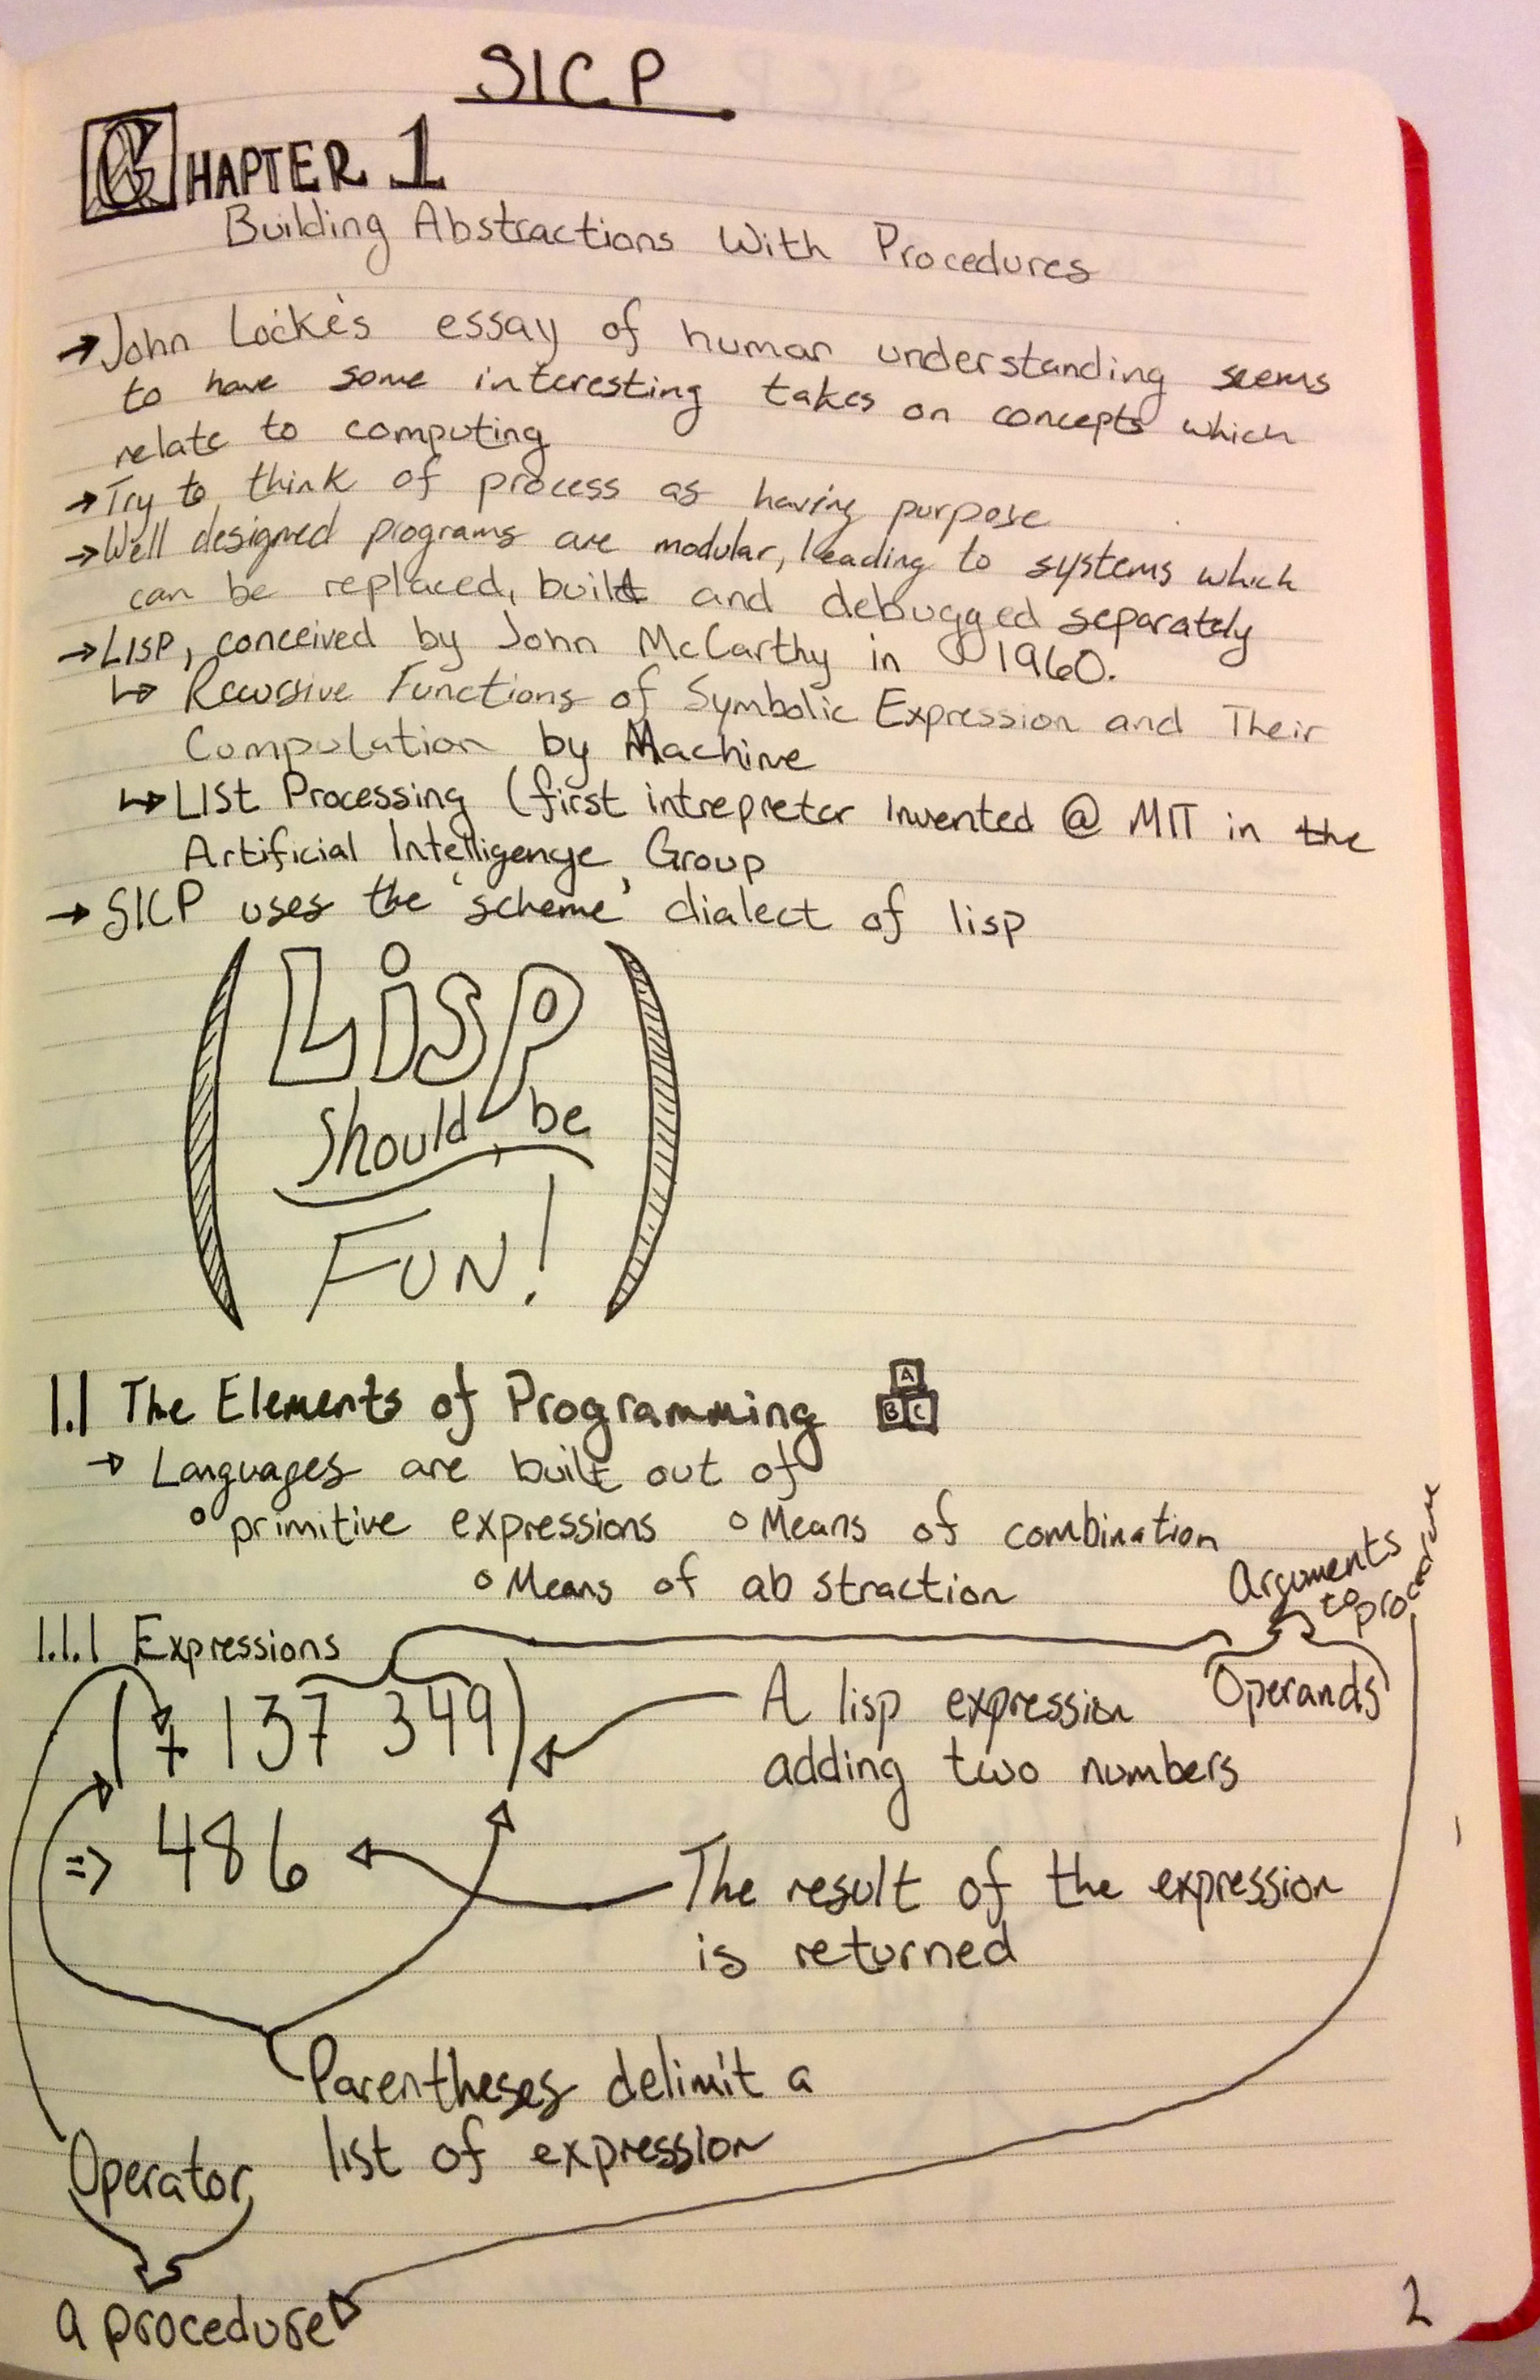 SICP
CHAPTER 1
Building Abstractions With Procedures
→ John Locke's essay of human understanding seems
to have some interesting takes on concepts which
relate to computing
→ Try to think of process as having purpose
→ Well designed programs are modular, leading to systems which
can be replaced, built and debugged separately
→ LISP, conceived by John McCarthy in 1960.
↳ Recursive Functions of Symbolic Expression and Their
Computation by Machine
↳ LISt Processing (first intrepreter Invented @ MIT in the
Artificial Intelligence Group
→ SICP uses the 'scheme' dialect of lisp
(LiSP
should be
FUN!)
1.1 The Elements of Programming
A
B C
→ Languages are built out of
° primitive expressions ° Means of combination
° Means of abstraction
Arguments
to procedure
1.1.1 Expressions
Operands
(+ 137 349)
A lisp expression
adding two numbers
=> 486
The result of the expression
is returned
Parentheses delimit a
list of expression
Operator
a procedure
2